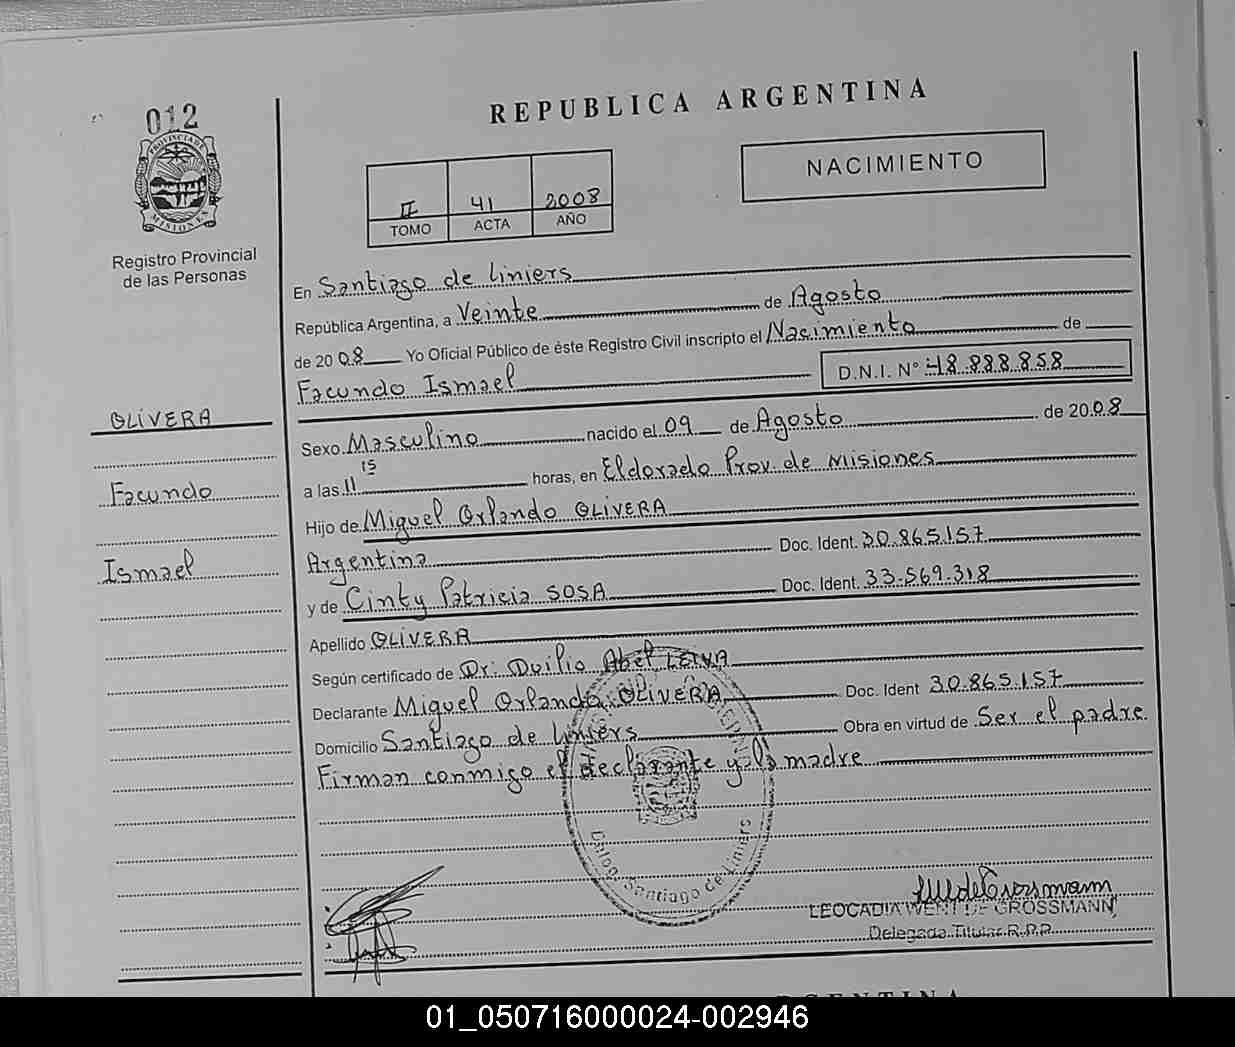 012
PROVINCIA DE
MISIONES
Registro Provincial
de las Personas
OLIVERA
Facundo
Ismael
REPUBLICA ARGENTINA
NACIMIENTO
II 41 2008
TOMO ACTA AÑO
En Santiago de Liniers
República Argentina, a Veinte de Agosto
de 2008 Yo Oficial Público de éste Registro Civil inscripto el Nacimiento de
Facundo Ismael D.N.I. N° 48.888.858
Sexo Masculino nacido el 09 de Agosto de 2008
a las 11 15 horas, en Eldorado Prov. de Misiones
Hijo de Miguel Orlando OLIVERA
Argentina Doc. Ident. 30.865.157
y de Cinty Patricia SOSA Doc. Ident. 33.569.318
Apellido OLIVERA
Según certificado de Dr. Duilio Abel LEIVA
Declarante Miguel Orlando OLIVERA Doc. Ident 30.865.157
Domicilio Santiago de Liniers Obra en virtud de Ser el padre.
Firman conmigo el declarante y la madre
Santiago de Liniers
LEOCADIA WENT DE GROSSMANN
Delegada Titular R.P.P.
01_050716000024-002946